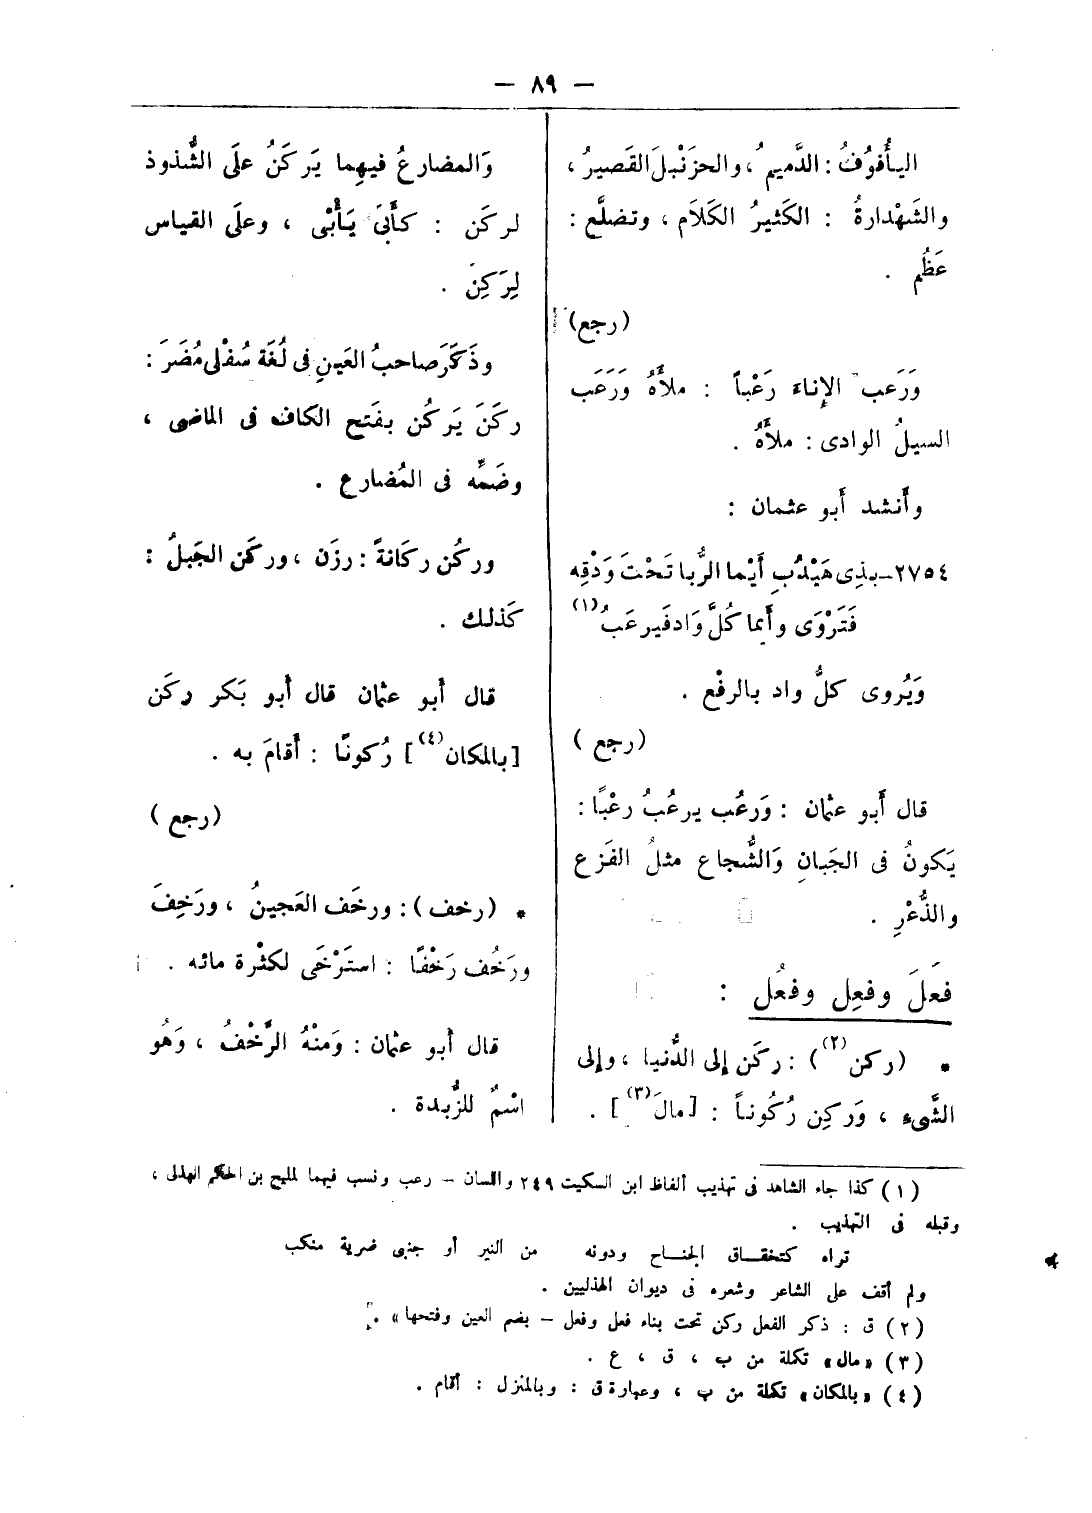 — ٨٩ —
اليأفوُفُ : الدَّميمُ ، والحزَنْبل القَصيرُ ،
والشَهْدارةُ : الكَثيرُ الكَلاَم ، وتضلَّع :
عَظُم .
(رجع)
وَرَعب الإناء رَعْباً : ملأَهُ وَرَعَب
السيلُ الوادى : ملأَهُ .
وأَنشد أَبو عثمان :
٢٧٥٤ــ بذِى هَيْدَبٍ أَيْما الرُّبا تَحْتَ وَدْقِه
فَتَرْوَى وأَيما كُلَّ وَادفَيرعَبُ (١)
وَيُروى كلُّ واد بالرفْع .
(رجع )
قال أَبو عثمان : وَرعُب يرعُبُ رعْبًا :
يَكونُ فى الجَبانِ وَالشُّجاع مثلُ الفَزع
والذُّعْرِ .
فعَلَ وفعِل وفعُل :
* (ركن (٢)) : ركَن إلى الدُّنيا ، وإلى
الشَّىء ، وَركِن رُكُوناً : [مالَ (٣)] .
وَالمضارعُ فيهِما يَركَنُ علَى الشُّذوذ
لركَن : كأَبَى يَأْبْى ، وعلَى القياس
لِرَكِنَ .
وذَكَرَ صاحبُ العَينِ فى لُغَة سُفْلى مُضَرَ :
ركَنَ يَركُن بفَتح الكاف فى الماضى ،
وضَمِّه فى المُضارع .
وركُن ركَانةً : رزَن ، وركَن الجَبلُ :
كَذلك .
قال أَبو عثمان قال أَبو بَكر ركَن
[بالمكان (٤)] رُكونًا : أَقامَ به .
(رجع )
* (رخف) : ورخَف العَجينُ ، ورَخِفَ
ورَخُف رَخْفًا : استَرْخَى لكثْرة مائه .
قال أَبو عثمان : وَمنْهُ الرَّخْفُ ، وَهُو
اسْمٌ للزُّبدة .
(١) كذا جاء الشاهد فى تهذيب ألفاظ ابن السكيت ٢٤٩ واللسان – رعب ونسب فيهما لمليح بن الحكم الهذلى ،
وقبله فى التهذيب .
تراه كتخفــاق الجنــاح ودونه من النير أو جنبى ضرية منكب
ولم أقف على الشاعر وشعره فى ديوان الهذليين .
(٢) ق : ذكر الفعل ركن تحت بناء فعل وفعل – بضم العين وفتحها» .
(٣) «مال» تكملة من ب ، ق ، ع .
(٤) «بالمكان» تكملة من ب ، وعبارة ق : وبالمنزل : أقام .